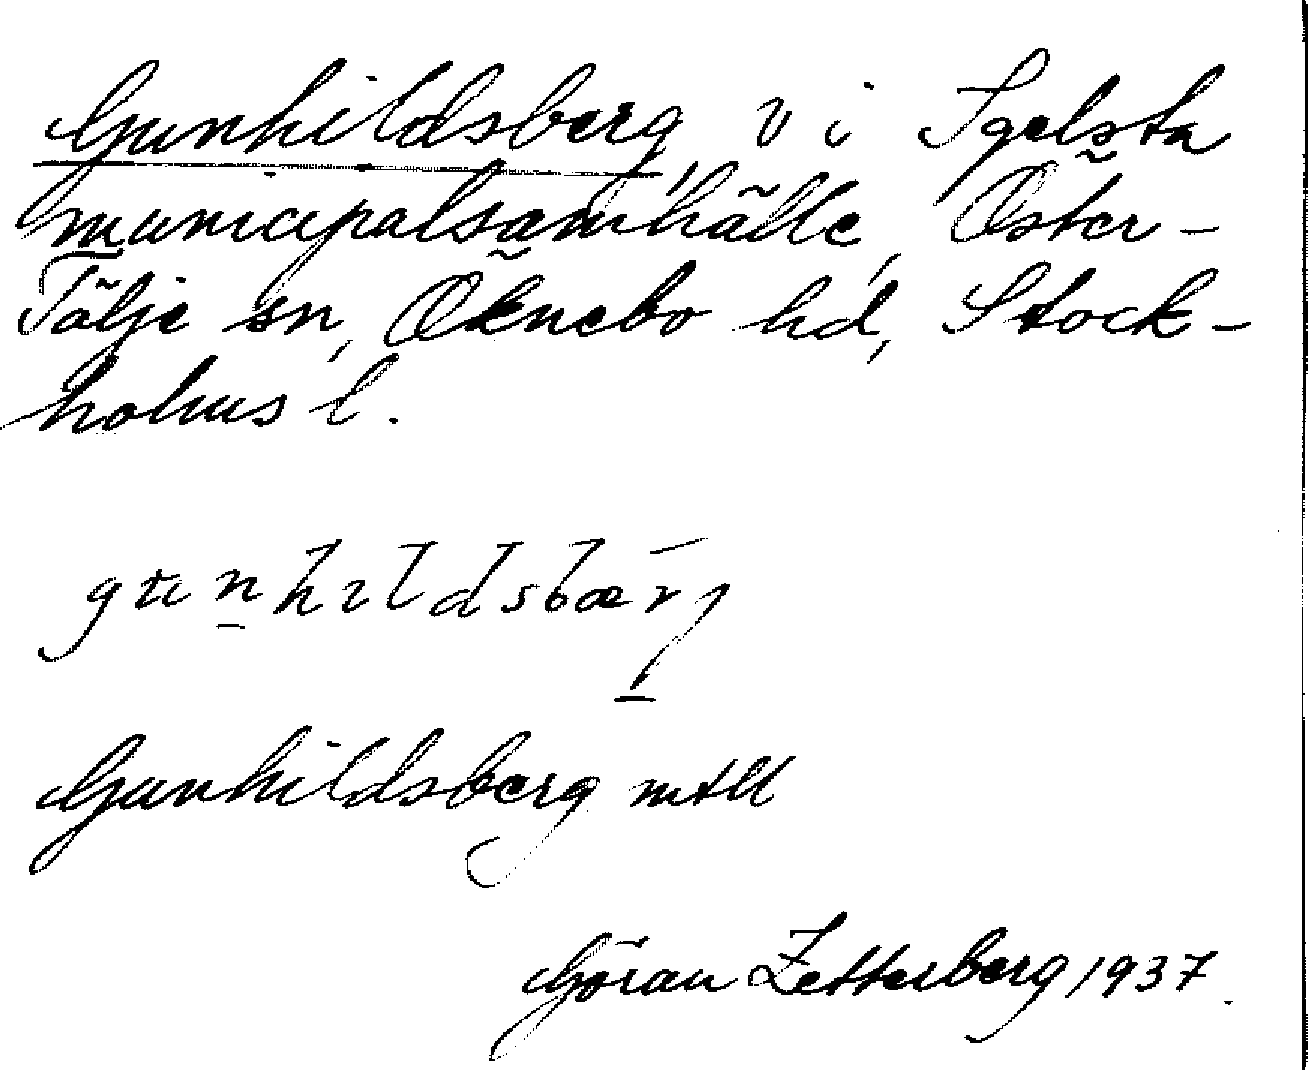 Gunhildsberg, v i Igelsta
municipalsamhälle, Öster-
Tälje sn, Öknebo hd, Stock-
holms l.
Gunhildsberg mtll
Göran Zetterberg 1937.